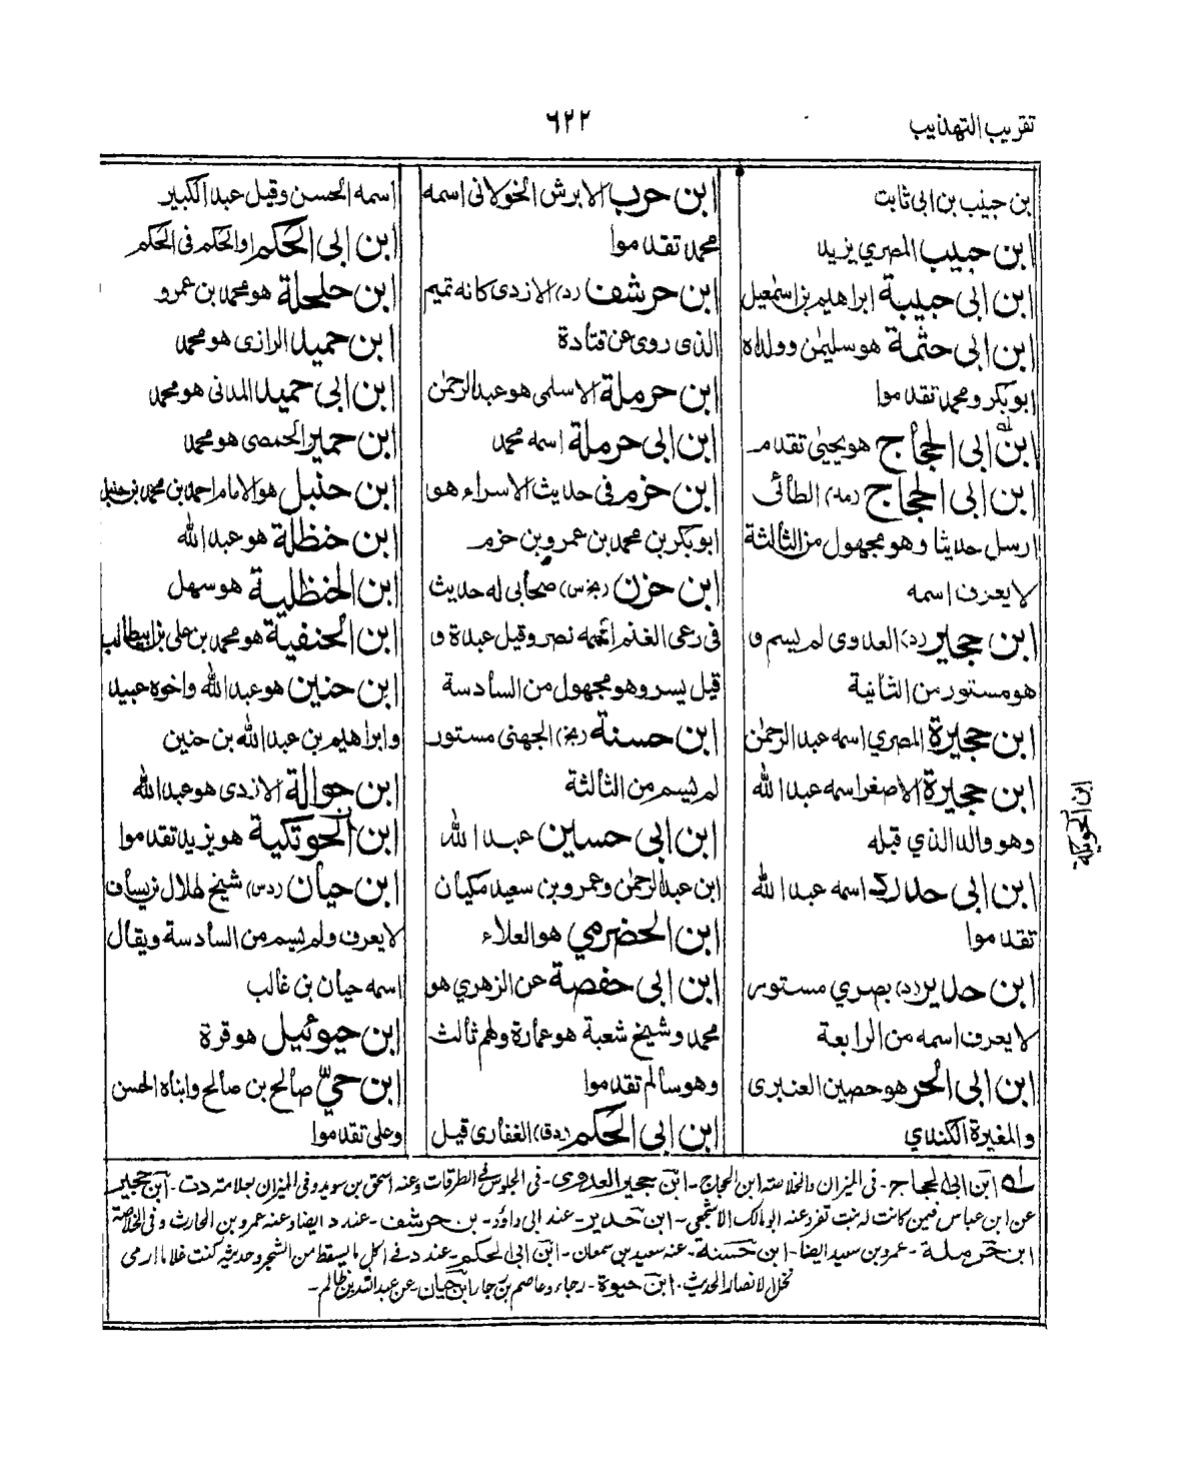 تقريب التهذيب
٦٢٢
بن حبيب بن ابى ثابت
ابن حبيب المصري يزيد
ابن ابى حبيبة ابراهيم بن اسمٰعيل
ابن ابى حثمة هو سليمٰن وولداه
ابو بكر ومحمد تقدموا
ابن ابى الحجاج هو يحيٰى تقدم
ابن ابى الحجاج (مد) الطائى
ارسل حديثا وهو مجهول من الثالثة
لا يعرف اسمه
ابن حجير (د) العدوى لم يسم و
هو مستور من الثانية
ابن حجيرة المصري اسمه عبد الرحمٰن
ابن حجيرة الاصغر اسمه عبد الله
وهو والد الذي قبله
ابن ابى حدرد اسمه عبد الله
تقدموا
ابن حدير (د) بصري مستور
لا يعرف اسمه من الرابعة
ابن ابى الحر هو حصين العنبرى
والمغيرة الكندي
ابن حرب الابرش الخولانى اسمه
محمد تقدموا
ابن حرشف (د) الازدى كانه تميم
الذى روى عن قتادة
ابن حرملة الاسلمى هو عبد الرحمٰن
ابن ابى حرملة اسمه محمد
ابن حزم فى حديث الاسراء هو
ابو بكر بن محمد بن عمرو بن حزم
ابن حزن (بخ س) صحابى له حديث
فى رعى الغنم اسمه نصر وقيل عبدة و
قيل يسر وهو مجهول من السادسة
ابن حسنة (بخ) الجهنى مستور
لم يسم من الثالثة
ابن ابى حسين عبد الله
ابن عبد الرحمٰن وعمرو بن سعيد مكيان
ابن الحضرمي هو العلاء
ابن ابى حفصة عن الزهري هو
محمد وشيخ شعبة هو عمارة ولهم ثالث
وهو سالم تقدموا
ابن ابى الحكم (دق) الغفارى قيل
اسمه الحسن وقيل عبد الكبير
ابن ابى الحكم او الحكم فى الحكم
ابن حلحلة هو محمد بن عمرو
ابن حميد الرازى هو محمد
ابن ابى حميد المدنى هو محمد
ابن حمير الحمصى هو محمد
ابن حنبل هو الامام احمد بن محمد بن حنبل
ابن حنظلة هو عبد الله
ابن الحنظلية هو سهل
ابن الحنفية هو محمد بن على بن ابيطالب
ابن حنين هو عبد الله واخوه عبيد
وابراهيم بن عبد الله بن حنين
ابن حوالة الازدى هو عبد الله
ابن الحوتكية هو يزيد تقدموا
ابن حيان (دس) شيخ لهلال بن يساف
لا يعرف ولم يسم من السادسة ويقال
اسمه حيان بن غالب
ابن حيوئيل هو قرة
ابن حيّ صالح بن صالح وابناه الحسن
وعلى تقدموا
ابن الحوتكية
له ابن ابى الحجاج - فى الميزان والخلاصة ابن الحجاج - ابن حجير العدوى - فى الجلوس فى الطرقات وعنه اسحق بن سويد وفى الميزان بعلامة دت - ابن حجير
عن ابن عباس فيمن كانت له بنت تفرد عنه ابو مالك الاشجعى - ابن حدير - عند ابى داؤد - بن حرشف - عند د ايضا وعنه عمرو بن الحارث وفى الخلاصة
ابن حرملة - عمرو بن سعيد ايضا - ابن حسنة - عنه سعيد بن سمعان - ابن ابى الحكم - عند د فى اكل ما يسقط من الشجر وحديثه كنت غلاما ارمى
نخل الانصار الحديث - ابن حيوة - رجاء وعاصم بن رجاء ابن حيان - عن عبد الله بن ظالم -